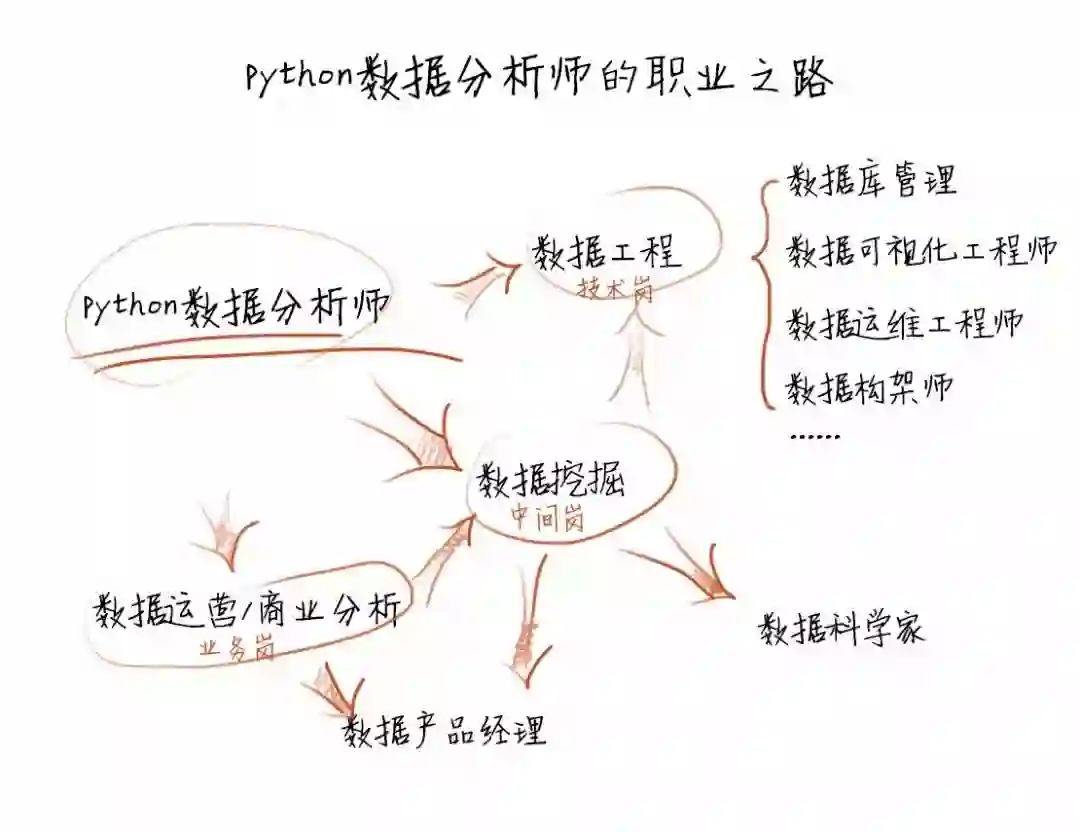 python数据分析师的职业之路
数据库管理
数据工程
技术岗
数据可视化工程师
python数据分析师
数据运维工程师
数据构架师
......
数据挖掘
中间岗
数据运营/商业分析
业务岗
数据科学家
数据产品经理